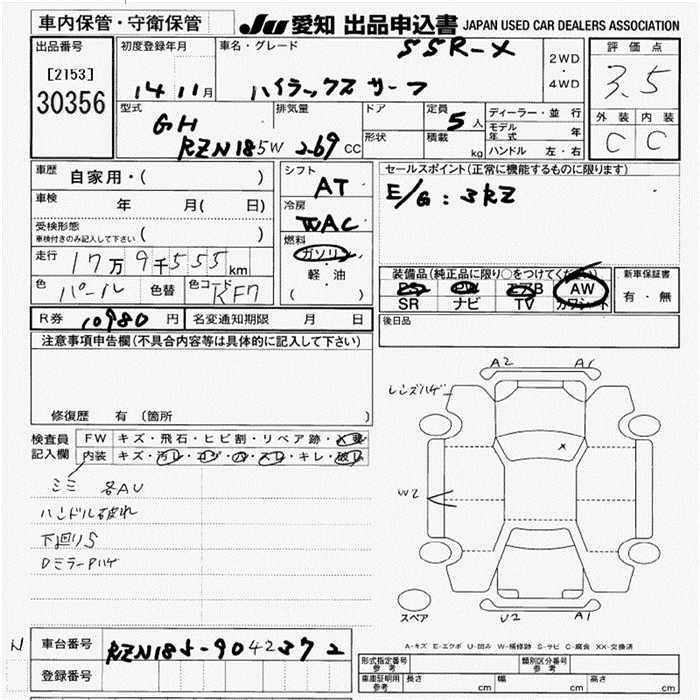 車内保管・守衛保管
JU 愛知 出品申込書 JAPAN USED CAR DEALERS ASSOCIATION
出品番号
[2153]
30356
初度登録年月
14 11月
車名・グレード
SSR-X
ハイラックス サーフ
2WD
・
4WD
評価点
3.5
外装 内装
C C
型式
GH
RZN185W
排気量
2.69 CC
ドア
形状
定員
5人
積載
kg
ディーラー・並行
モデル年式 年
ハンドル 左・右
車歴
自家用・( )
車検
年 月( 日)
受検形態
車検付きのみ記入して下さい ( )
走行
17万9千555km
色 パール 色替 色コード KF7
シフト
AT
冷房
WAC
燃料
ガソリン
・
軽・油
( )
セールスポイント(正常に機能するものに限ります)
E/G:3RZ
装備品(純正品に限り○をつけてください)
PS PW エアB AW
SR ナビ TV カワシート
新車保証書
有・無
後日品
R券 10980円 名変通知期限 月 日
注意事項申告欄(不具合内容等は具体的に記入して下さい)
修復歴 有(箇所 )
検査員記入欄
FW キズ・飛石・ヒビ割・リペア跡・
内装 キズ・汚レ・コゲ・穴・スレ・キレ・破レ
ミミ 各AU
ハンドル破れ
下廻りS
DミラーPハゲ
A2 A1
レンズハゲ
X
W2
スペア
U2 A1
A-キズ E-エクボ U-凹み W-補修跡 S-サビ C-腐食 XX-交換済
N
車台番号 RZN185-9042372
登録番号
形式指定番号 参考
類別区分番号 参考
車庫証明用 参考 長さ cm 幅 cm 高さ cm